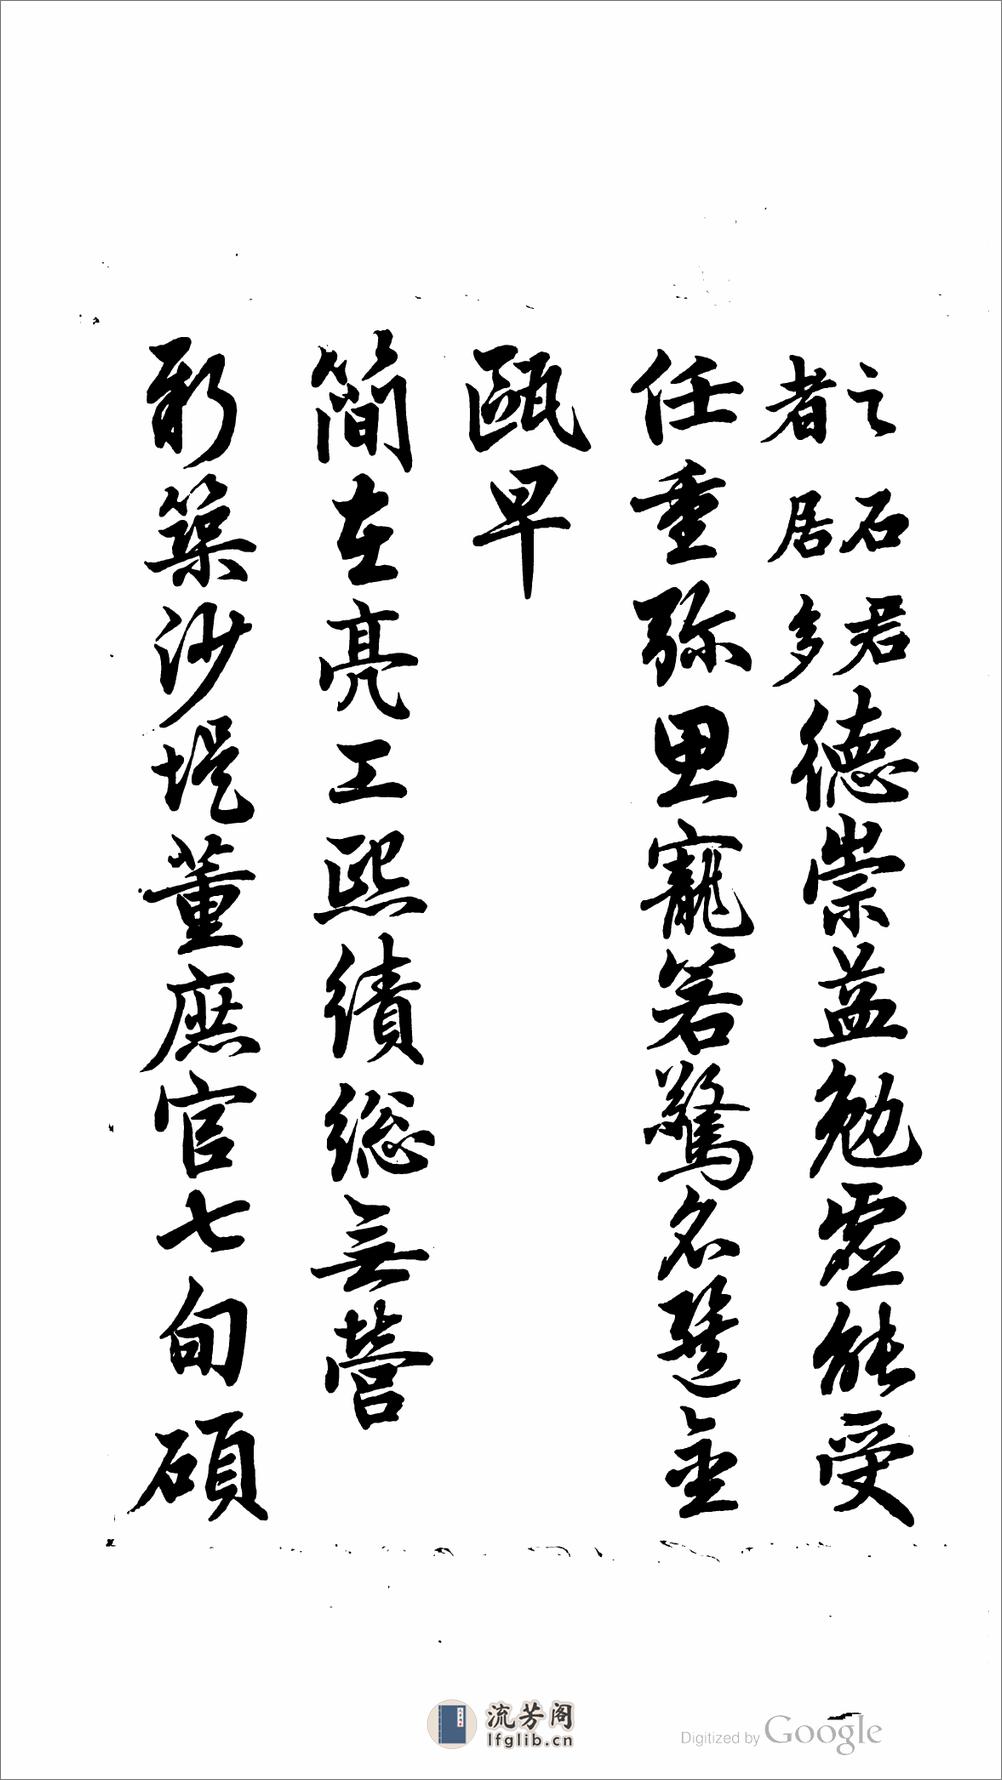 之石君
者居多
德崇益勉虛能受
任重弥思寵若驚名㨗金
甌早
簡在亮工熙績総無營
新築沙堤董庶官七旬碩
流芳阁
lfglib.cn
Digitized by Google